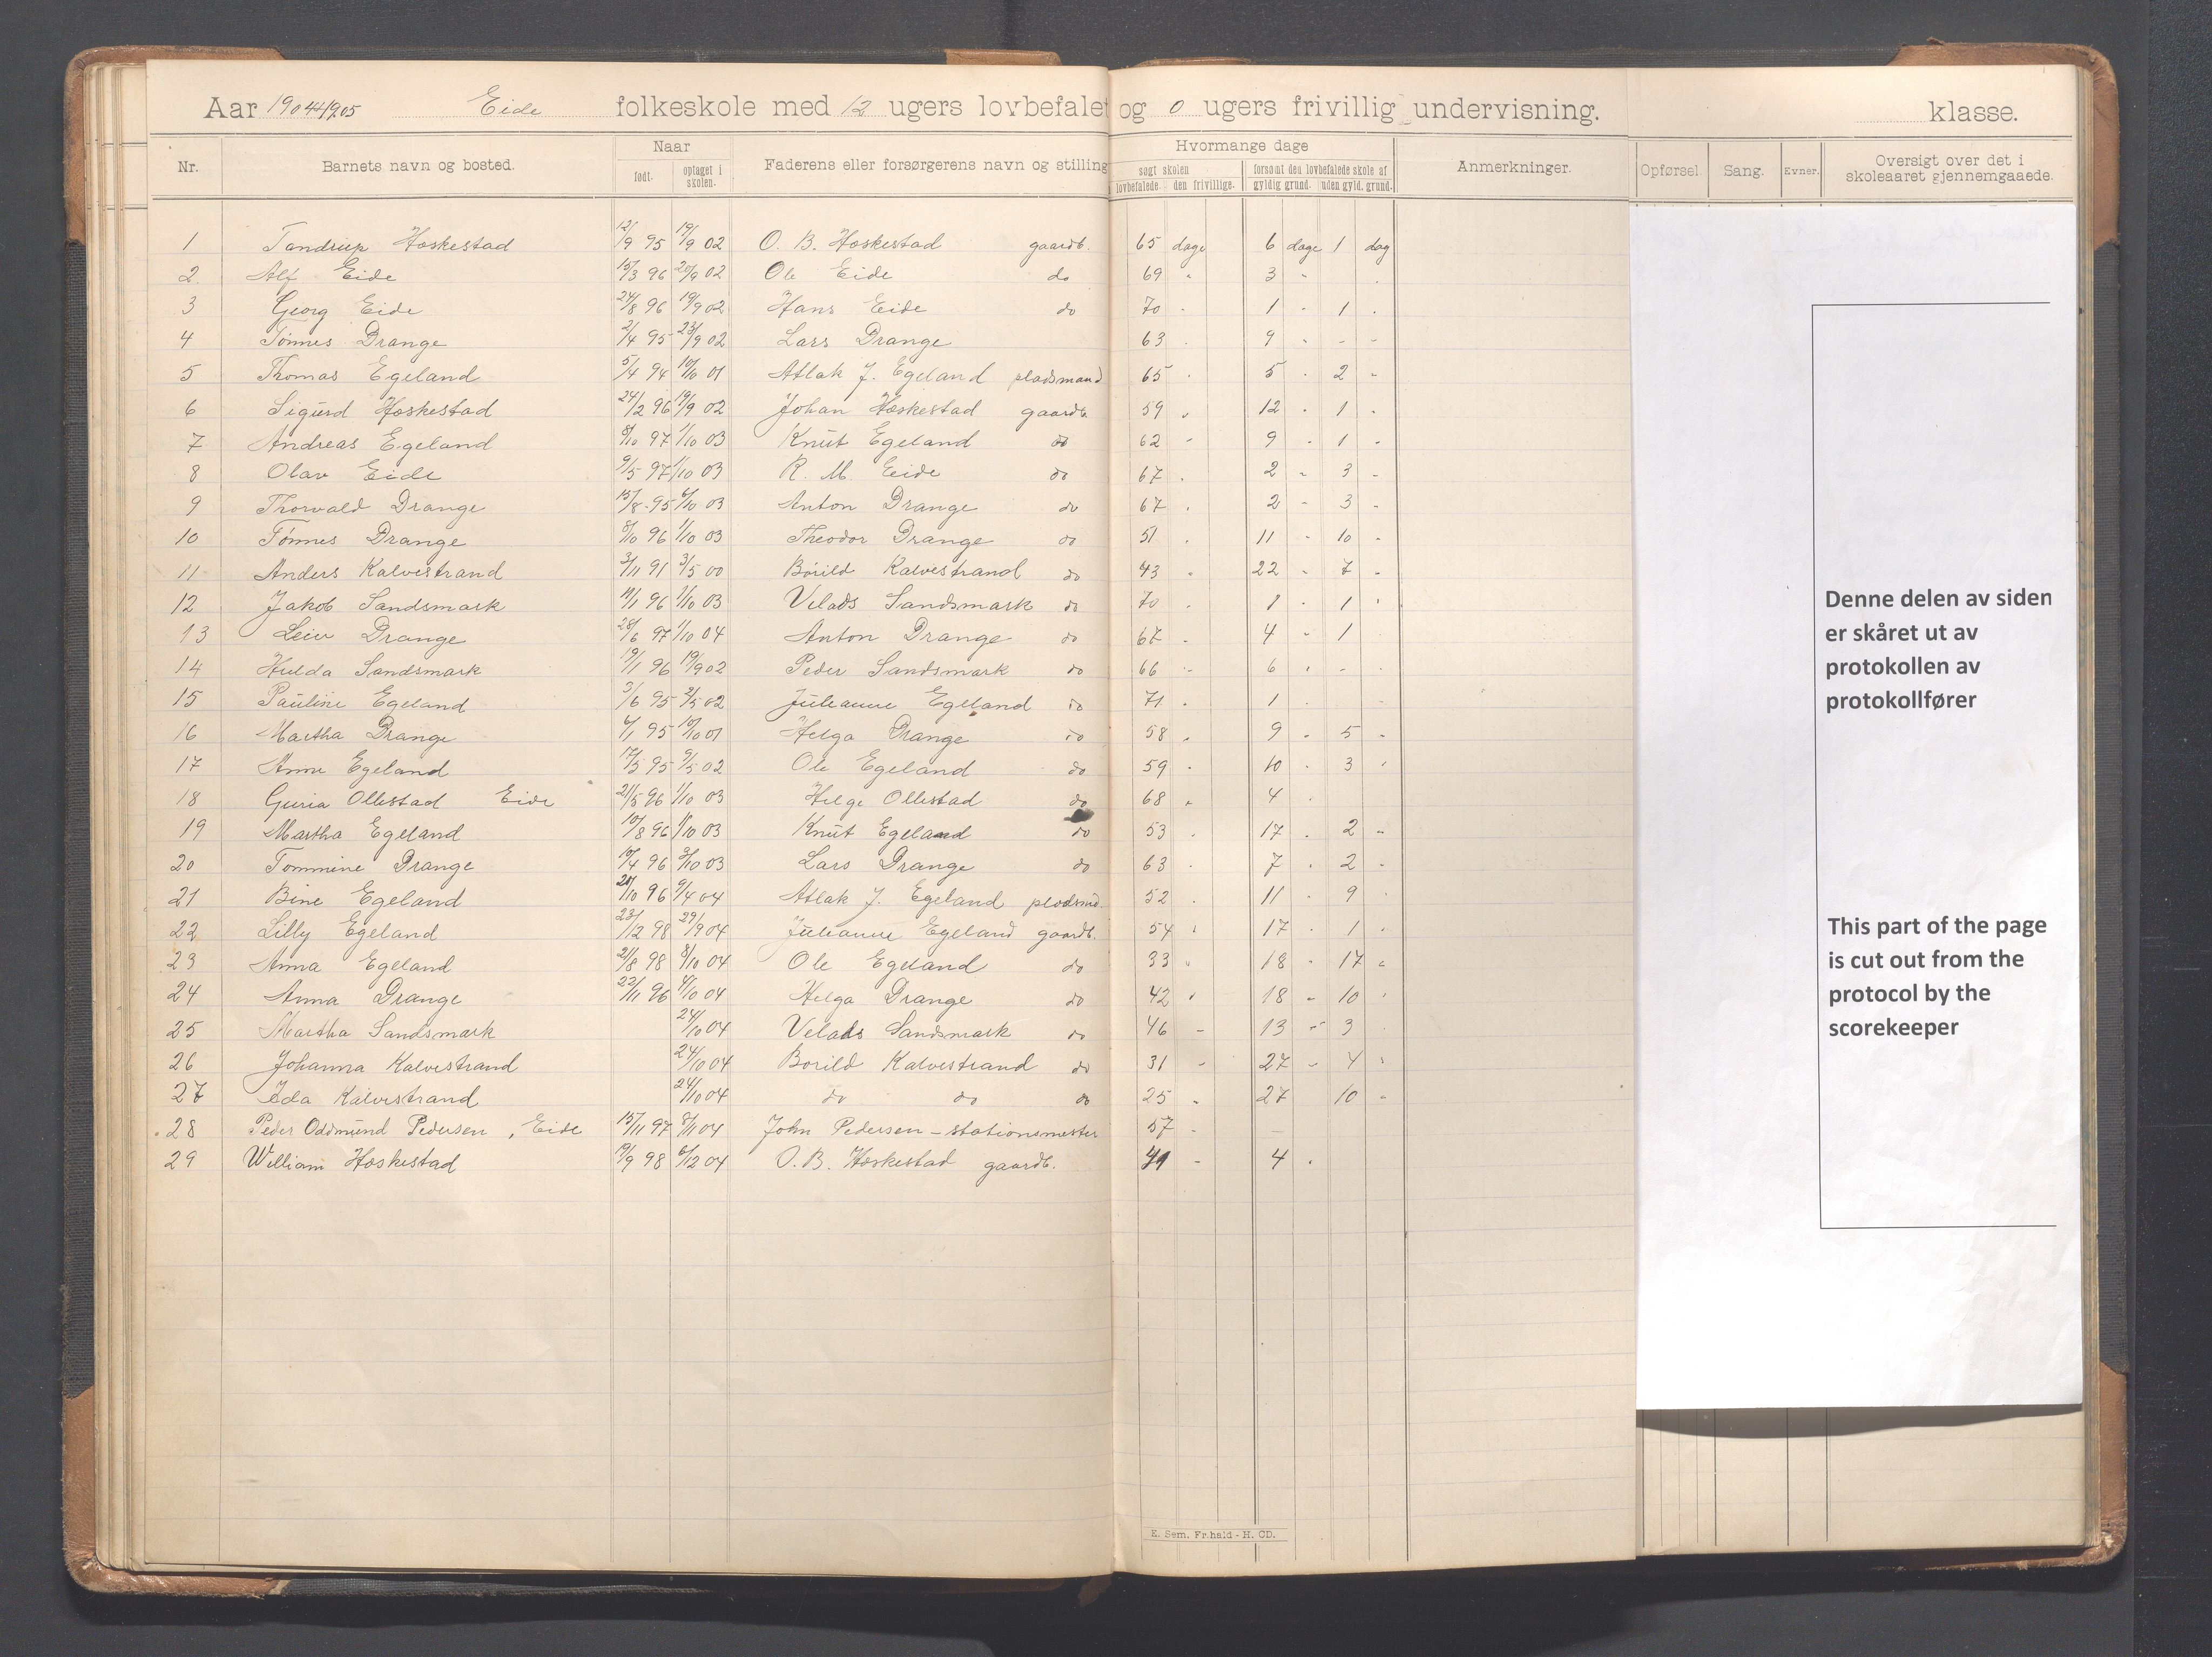 Aar 1904-1905 Eide folkeskole med 12 ugers lovbefalet og 0 ugers frivillig undervisning. klasse.
Nr. Barnets navn og bosted. Naar født. optaget i skolen. Faderens eller forsørgerens navn og stilling Hvormange dage søgt skolen lovbefalede. den frivillige. forsømt den lovbefalede skole af gyldig grund. uden gyld. grund. Anmerkninger. Opførsel. Sang. Evner. Oversigt over det i skoleaaret gjennemgaaede.
1 Tandrup Hæskestad 12/9 95 19/9 02 O. B. Hæskestad gaardb. 65 dage 6 dage 1 dag
2 Alf Eide 15/3 96 20/9 02 Ole Eide do 69 " 3 "
3 Georg Eide 24/8 96 19/9 02 Hans Eide do 70 - 1 - 1 .
4 Tönnes Drange 2/4 95 23/9 02 Lars Drange 63 . 9 . - -
5 Thomas Egeland 5/4 94 10/10 01 Atlak J. Egeland pladsmand 65 . 5 . 2 -
6 Sigurd Hæskestad 24/2 96 19/9 02 Johan Hæskestad gaardb. 59 . 12 . 1 .
7 Andreas Egeland 8/10 97 1/10 03 Knut Egeland do 62 - 9 . 1 -
8 Olav Eide 9/5 97 1/10 03 R. M. Eide do 67 . 2 - 3 -
9 Thorvald Drange 15/8 95 6/10 03 Anton Drange do 67 . 2 - 3 -
10 Tönnes Drange 8/10 96 1/10 03 Theodor Drange do 51 . 11 . 10 -
11 Anders Kalvestrand 3/11 91 3/5 00 Börild Kalvestrand do 43 . 22 - 7 -
12 Jakob Sandsmark 19/1 96 1/10 03 Velads Sandsmark do 70 . 1 . 1 .
13 Leiv Drange 28/6 97 1/10 04 Anton Drange do 67 - 4 - 1
14 Hulda Sandsmark 19/1 96 19/9 02 Peder Sandsmark do 66 - 6 . - .
15 Pauline Egeland 3/6 95 2/5 02 Julianne Egeland do 71 . 1 .
16 Martha Drange 6/1 95 10/10 01 Helga Drange do 58 . 9 - 5 -
17 Anne Egeland 17/5 95 9/5 02 Ole Egeland do 59 . 10 . 3 .
18 Guria Ollestad Eide 21/5 96 1/10 03 Helge Ollestad do 68 . 4 .
19 Martha Egeland 10/8 96 1/10 03 Knut Egeland do 53 . 17 . 2 -
20 Tommine Drange 19/4 96 3/10 03 Lars Drange do 63 . 7 . 2 -
21 Bine Egeland 10 96 9/4 04 Atlak J. Egeland pladsmd. 52 . 11 . 9 .
22 Lilly Egeland 23/12 98 29/9 04 Julianne Egeland gaardb. 54 . 17 . 1 .
23 Anna Egeland 21/8 98 8/10 04 Ole Egeland do 33 " 18 - 17 "
24 Anna Drange 22/11 96 4/10 04 Helga Drange do 42 . 18 - 10 .
25 Martha Sandsmark 24/10 04 Velads Sandsmark do 46 - 13 - 3 .
26 Johanna Kalvestrand 24/10 04 Borild Kalvestrand do 31 - 27 - 4 .
27 Ida Kalvestrand 24/10 04 do do do 25 . 27 10 -
28 Peder Oddmund Pedersen, Eide 15/11 97 8/11 04 John Pedersen - stationsmester 57 -
29 William Hæskestad 9/9 98 6/12 04 O. B. Hæskestad gaardb. 41 - 4 .
E. Sem, Fr.hald - H. CD.
Denne delen av siden
er skåret ut av
protokollen av
protokollfører
This part of the page
is cut out from the
protocol by the
scorekeeper